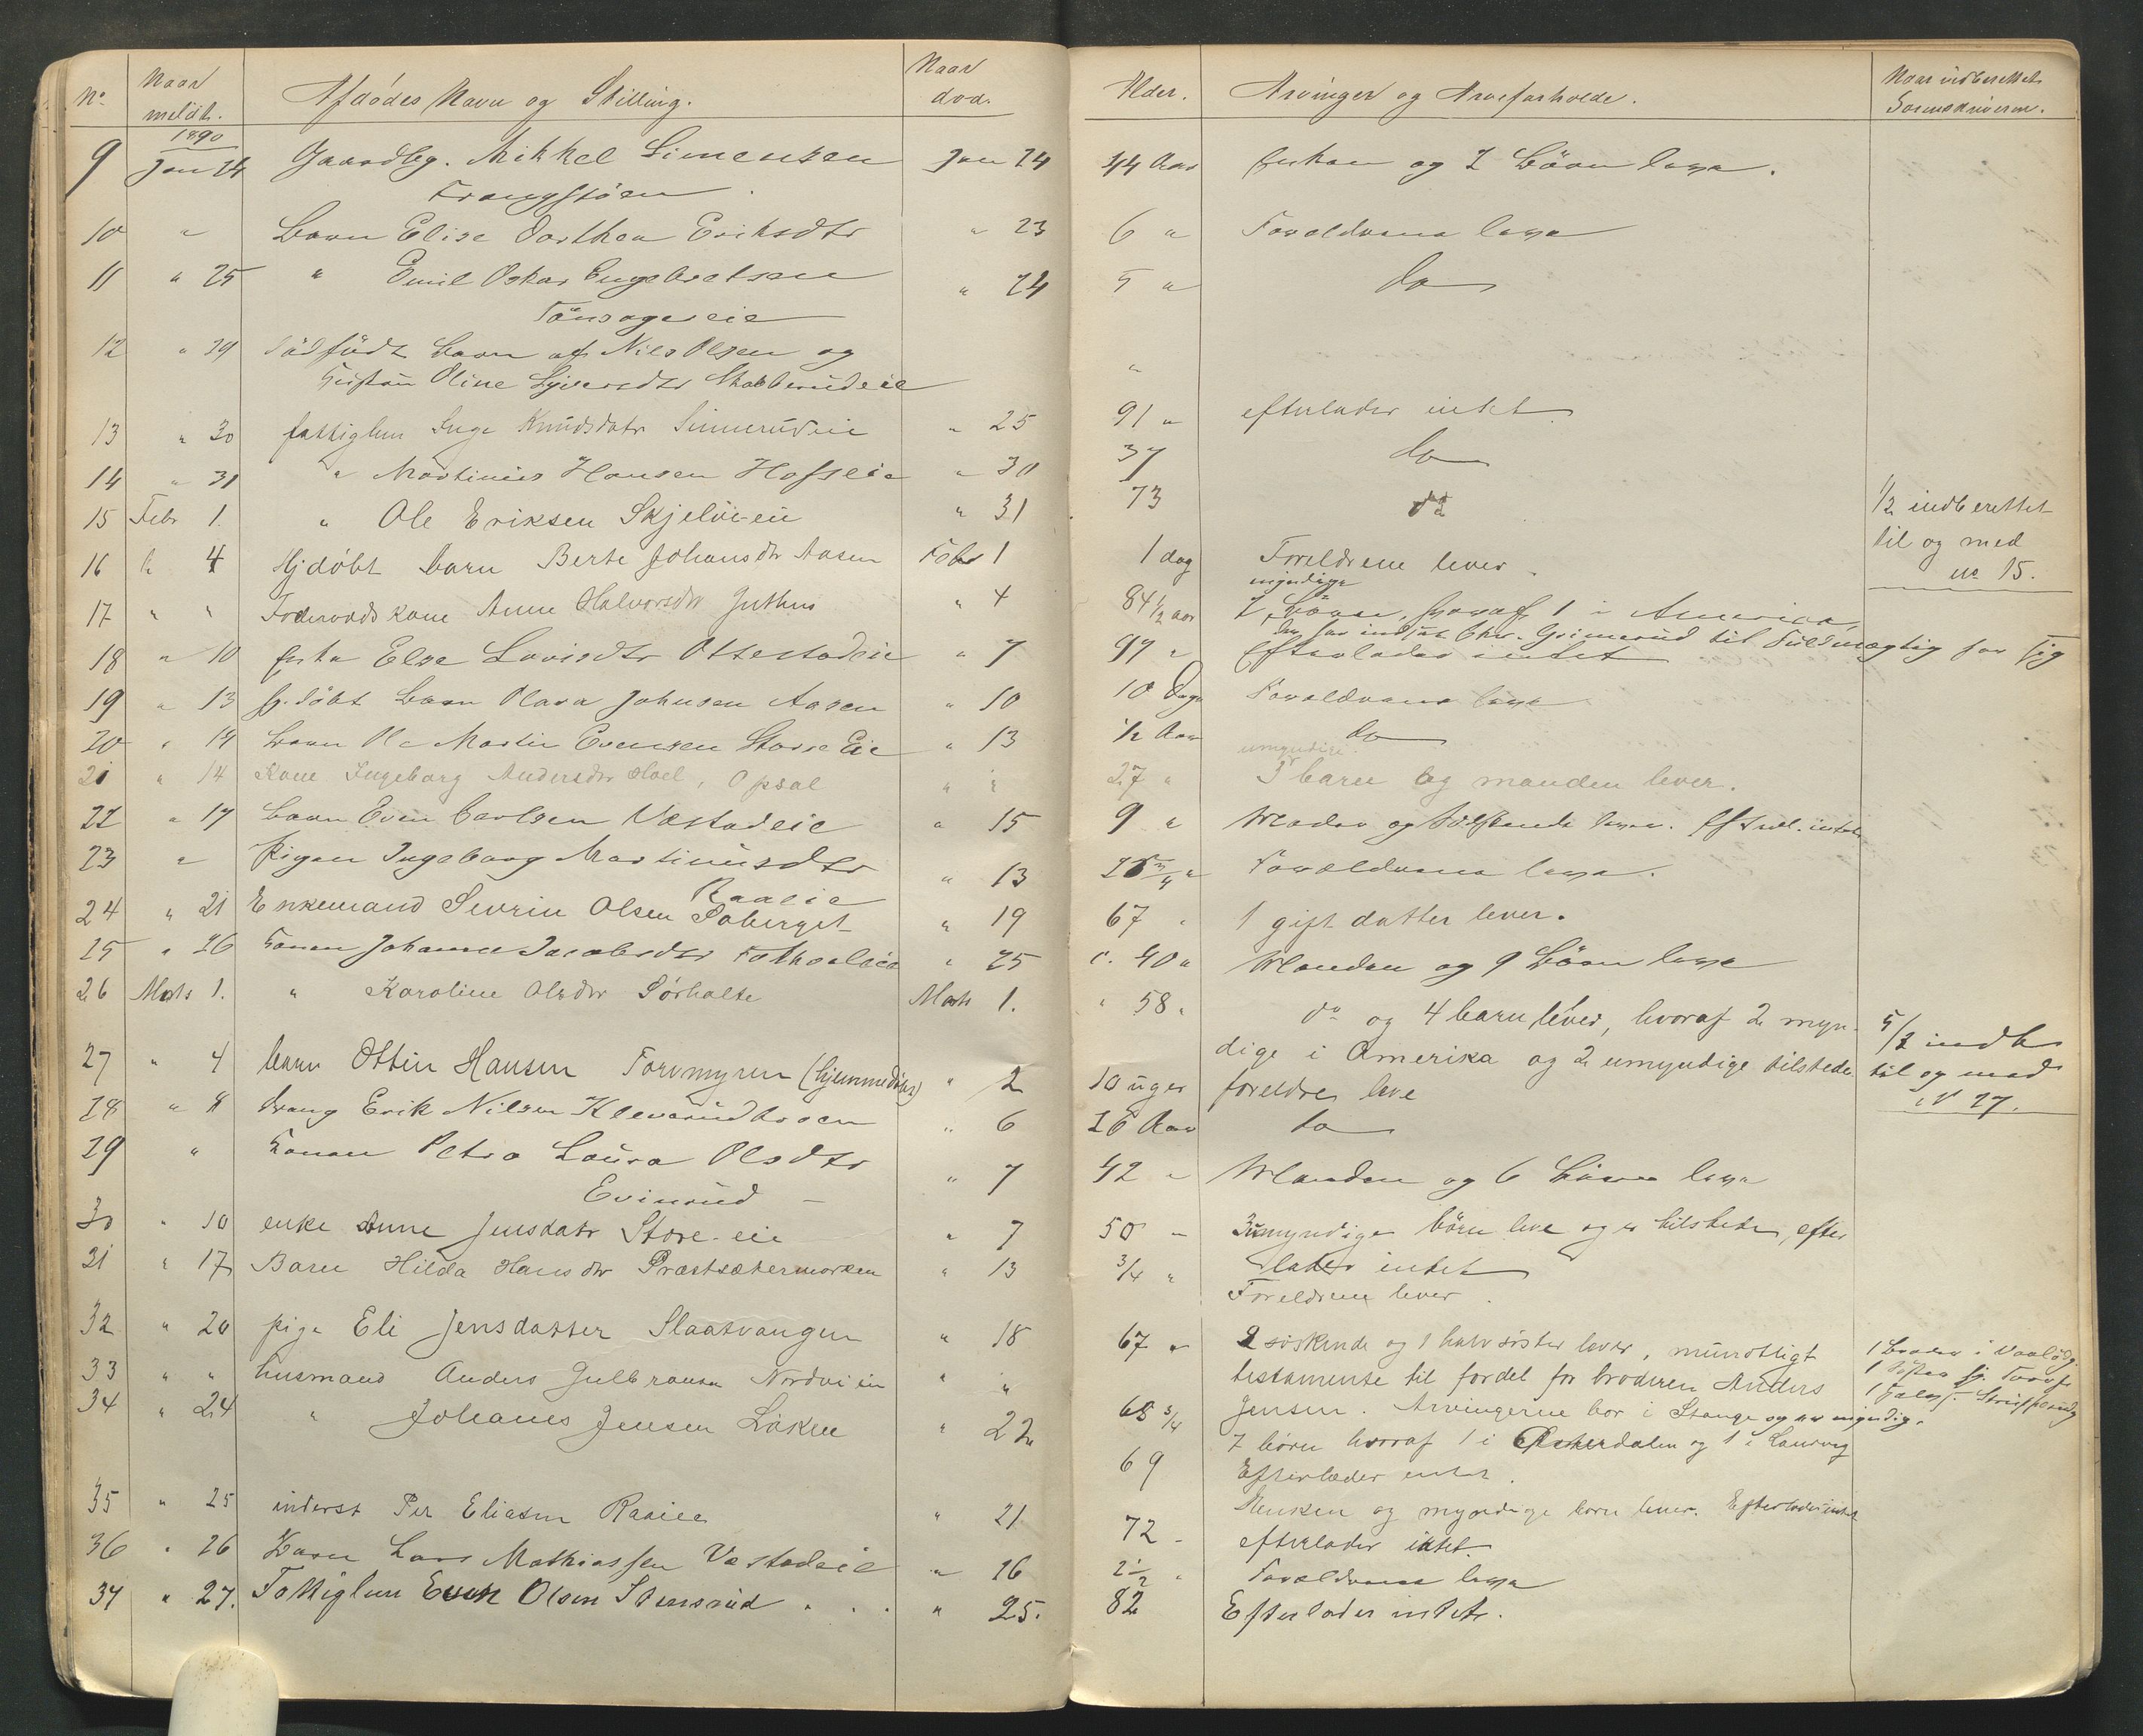 No. Naar meldt. Afdødes Navn og Stilling. Naar død. Alder. Arvinger og Arveforholde. Naar indberettet Sorenskriveren.
1890
9 Jan 24 Gaardbg. Mikkel Simensen Jan 24 44 Aar Enken og 7 Börn leve.
10 " Barn Elise Dorthea Eriksdtr " 23 6 " Forældrene leve
11 " 25 " Emil Oskar Engebretsen " 24 5 " do
Tönsagereie
12 " 29 Dödfödt Barn af Nils Olsen og "
Hustru Oline Syversdtr Stabberudeie
13 " 30 fattiglem Inge Knudsdatr Simerudeie " 25 91 " efterlader intet
14 " 31 " Martinius Hansen Hofseie " 30 37 do
15 Febr 1. " Ole Eriksen Skjelveien " 31 73 do
1/2 indberettet
til og med
no 15.
16 " 4 Hjdøbt barn Berte Johansdtr Aasen Febr 1 1 dag Foreldrene lever.
17 " " Foderaadskone Anne Halvorsdtr Juthus " 4 84 1/2 aar 7 myndige Börn, hvoraf 1 i Amerika,
der har indsat Chr. Grimerud til Fuldmægtig for sig
18 " 10 Enke Else Lovisdtr Ottestadeie " 7 97 " Efterlader intet
19 " 13 hj. döbt Barn Olava Johnsen Aasen " 10 10 Dage Forældrene leve
20 " 14 Barn Ole Martin Evensen Storre Eie " 13 1/2 Aar do
21 " 14 Kone Ingeborg Andersdtr Hoel, Opsal " " 27 " 3 umyndige barn og manden lever.
22 " 17 Barn Even Carlsen Vestadeie " 15 9 " Moder og Sødskende leve. Efterl. intet
23 " Pigen Ingeborg Martinusdtr " 13 Forældrene leve.
Raaeie
24 " 21 Enkemand Severin Olsen Soberget " 19 67 " 1 gift datter lever.
25 " 26 Konen Johanne Jacobsdtr " 25 c. 40 " Manden og 9 Börn leve
26 Marts 1. " Karoline Olsdtr Sørholte Marts 1. " 58 " do og 4 barn lever, hvoraf 2 myn-
dige i Amerika og 2 umyndige tilstede
27 " 4 barn Ottin Hansen Forrmyren (hjemmedøbt) " 2 10 uger foreldre leve
5/3 indb
til og med
N 27.
28 " 8 dreng Erik Nilsen Kleverudbraaen " 6 16 Aar do
29 " Konen Petra Laura Olsdtr " 7 42 " Manden og 6 Börn leve
Evinrud
30 " 10 enke Anne Jensdatr Store-eie " 7 50 " 3 umyndige börn leve og er tilstede, efter
lader intet
31 " 17 Barn Hilda Hansdtr Præstsætermarken " 13 3/4 " Foreldrene lever.
32 " 20 pige Eli Jensdatter Slaatsvangen " 18 67 " 2 søskende og 1 halvsøster lever, mundtligt
testamente til fordel for broderen Anders
Jensen. Arvingerne bor i Stange og er myndig.
1 Broder i
1 Søster
33 " " husmand Anders Gulbransen Nordvi eie " " 68 3/4 7 börn hvoraf 1 i Østerdalen og 1 i Laurvig
34 " 24 " Johannes Jensen Løken " 22 69 Efterlader intet.
Enken og myndige børn lever. Efterlader intet
35 " 25 inderst Per Eliasen Raaeie " 21 72 " efterlader intet.
36 " 26 Barn Lars Mathiassen Vestadeie " 26 2 1/2 " Forældrene leve
37 " 27. Fattiglem Even Olsen Stensrud . . . " 25. 82 Efterlader intet.